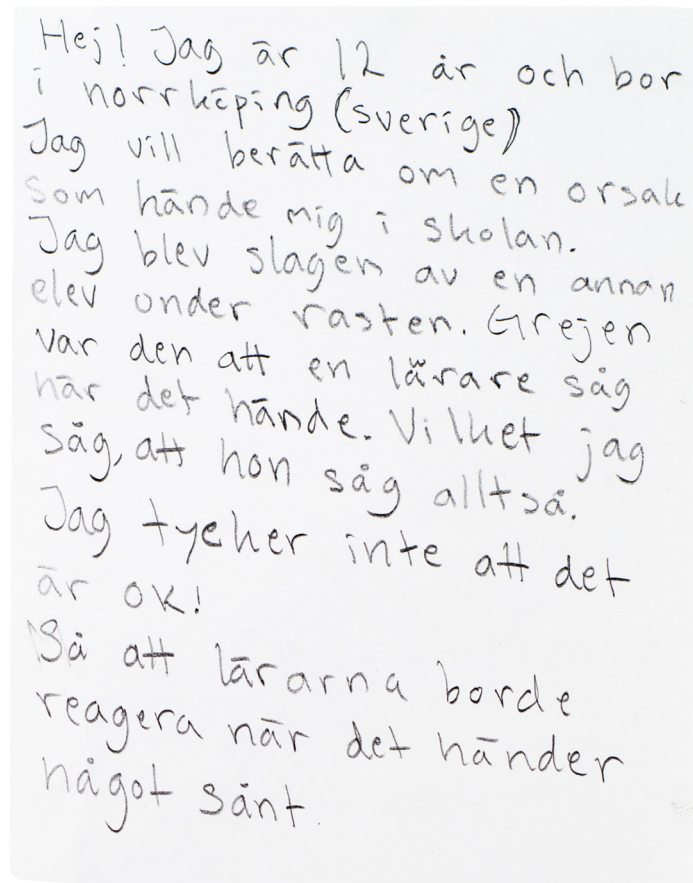 Hej! Jag är 12 år och bor
i norrköping (sverige)
Jag vill berätta om en orsak
som hände mig i skolan.
Jag blev slagen av en annan
elev under rasten. Grejen
var den att en lärare såg
när det hände. Vilket jag
såg, att hon såg alltså.
Jag tycker inte att det
är ok!
Så att lärarna borde
reagera när det händer
något sånt.